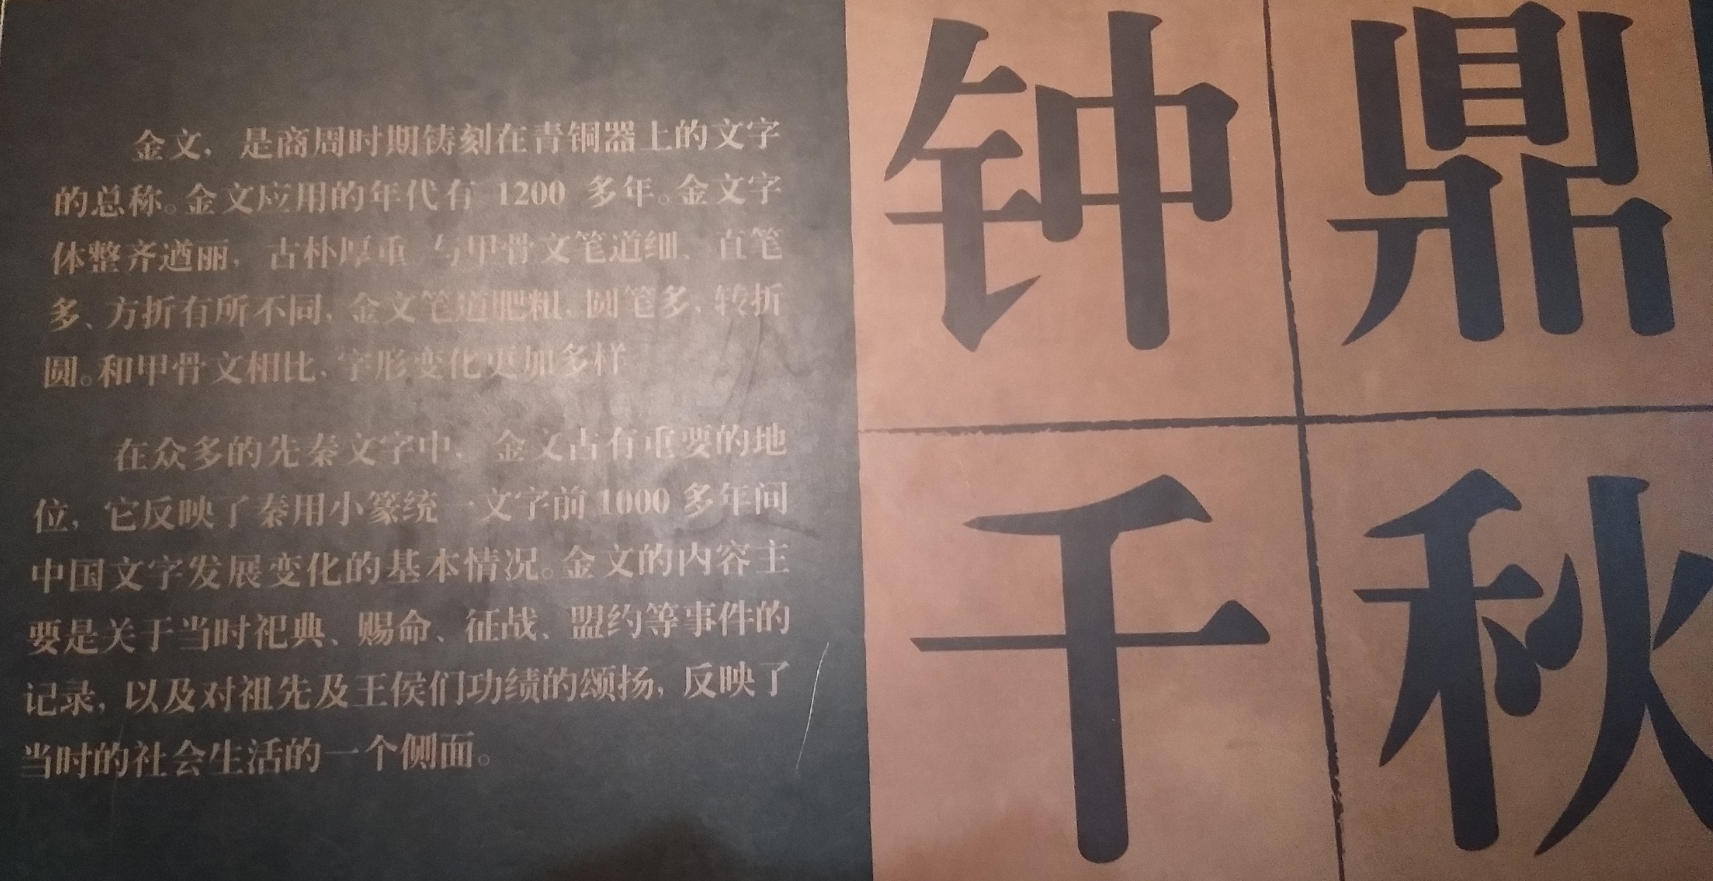 金文，是商周时期铸刻在青铜器上的文字
的总称。金文应用的年代有 1200 多年。金文字
体整齐遒丽，古朴厚重 与甲骨文笔道细、直笔
多、方折有所不同，金文笔道肥粗，圆笔多，转折
圆。和甲骨文相比，字形变化更加多样
在众多的先秦文字中，金文占有重要的地
位，它反映了秦用小篆统一文字前 1000 多年间
中国文字发展变化的基本情况。金文的内容主
要是关于当时祀典、赐命、征战、盟约等事件的
记录，以及对祖先及王侯们功绩的颂扬，反映了
当时的社会生活的一个侧面。
钟鼎
千秋